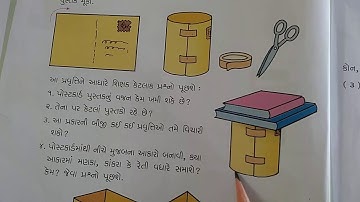 પુસ્તક મૂકો.
આ પ્રવૃત્તિને આધારે શિક્ષક કેટલાક પ્રશ્નો પૂછશે :
૧. પોસ્ટકાર્ડ પુસ્તકનું વજન કેમ ખમી શકે છે ?
૨. તેના પર કેટલાં પુસ્તકો રહે છે ?
૩. આ પ્રકારની બીજી કઈ કઈ પ્રવૃત્તિઓ તમે વિચારી
શકો ?
૪. પોસ્ટકાર્ડમાંથી નીચે મુજબના આકારો બનાવી, કયા
આકારમાં મણકા, કાંકરા કે રેતી વધારે સમાશે ?
કેમ ? જેવા પ્રશ્નો પૂછશો.
કોન,
( ૩ )